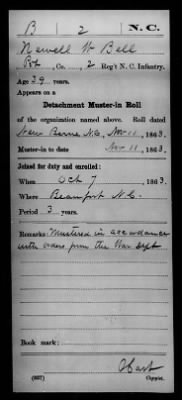 B 2 N.C.
Newell W Bell
Pvt, Co. , 2 Reg't N. C. Infantry.
Age 29 years.
Appears on a
Detachment Muster-in Roll
of the organization named above. Roll dated
New Berne N.C., Nov 11, 1863.
Muster-in to date Nov 11, 1863.
Joined for duty and enrolled:
When Oct 7, 1863.
Where Beaufort N.C.
Period 3 years.
Remarks: Mustered in accordance
with orders from the War Dept
Book mark:
(357)
Copyist.